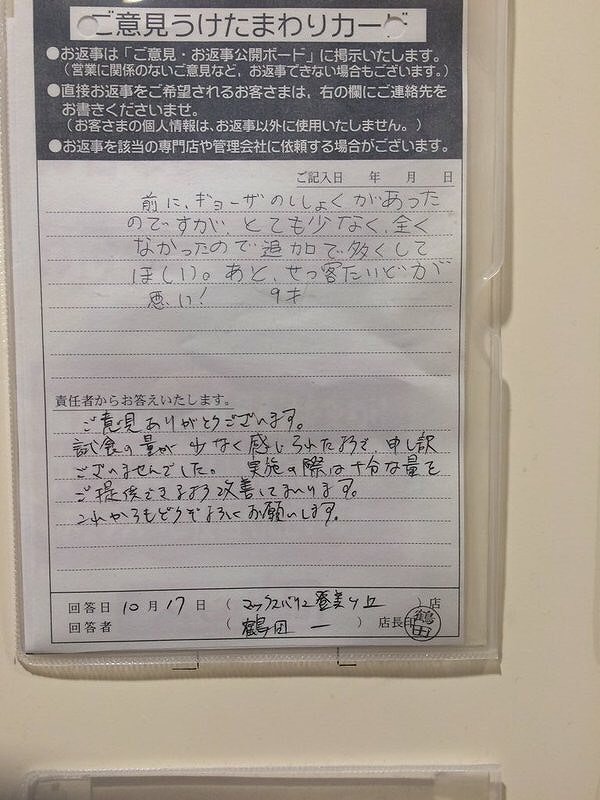 ご意見うけたまわりカード
●お返事は「ご意見・お返事公開ボード」に掲示いたします。
（営業に関係のないご意見など，お返事できない場合もございます。）
●直接お返事をご希望されるお客さまは、右の欄にご連絡先を
お書きくださいませ。
（お客さまの個人情報は、お返事以外に使用いたしません。）
●お返事を該当の専門店や管理会社に依頼する場合がございます。
ご記入日　年　月　日
前に、ギョーザのししょくがあった
のですが、とても少なく、全く
なかったので追加で多くして
ほしい。あと、せっ客たいどが
悪い！　9才
責任者からお答えいたします。
ご意見ありがとうございます。
試食の量が少なく感じられたようで、申し訳
ございませんでした。実施の際は十分な量を
ご提供できるよう改善してまいります。
これからもどうぞよろしくお願いします。
回答日 10月 17日 （マックスバリュ登美ヶ丘）店
回答者 （鶴田 一）店長印 鶴田